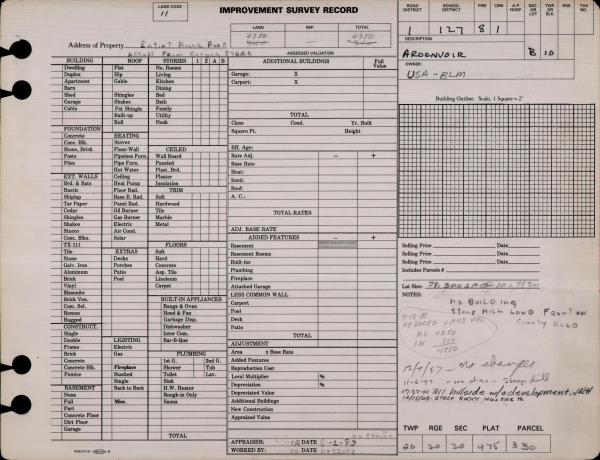 LAND CODE
11
IMPROVEMENT SURVEY RECORD
LAND IMP. TOTAL
4750 4750
Address of Property Entiat River Road
Across From Cooper Store
ASSESSED VALUATION
ROAD DISTRICT SCHOOL DISTRICT FIRE CEM. A.P. HOSP. SEC OR LOT TWP OR BLK RGE. TAX NO
127 8 1
DESCRIPTION
ARDENVOIR B 10
OWNER:
USA-BLM
Building Outline Scale, 1 Square = 2'
BUILDING ROOF STORIES 1 2 A B
Dwelling Flat No. Rooms
Duplex Hip Living
Apartment Gable Kitchen
Barn Dining
Shed Shingles Bed
Garage Shakes Bath
Cabin Pat Shingle Family
Built-up Utility
Roll Nook
FOUNDATION
Concrete HEATING
Conc. Blk. Stoves CEILED
Stone, Brick Floor-Wall Wall Board
Posts Pipeless Furn. Paneled
Piles Pipe Furn. Plast. Brd.
Hot Water Plaster
EXT. WALLS Ceiling Insulation
Brd. & Bats Heat Pump TRIM
Rustic Floor Rad. Soft
Shiplap Base B. Rad. Hardwood
Tar Paper Panel Rad. Tile
Cedar Oil Burner Marble
Shingles Gas Burner Metal
Shakes Electric
Stucco Air Cond.
Conc. Blks. Solar
TX-111 FLOORS
Tile EXTRAS Soft
Stone Decks Hard
Galv. Iron Porches Concrete
Aluminum Patio Asp. Tile
Brick Pool Linoleum
Vinyl Carpet
Masonite
Brick Ven. BUILT-IN APPLIANCES
Com. Sel. Range & Oven
Roman Hood & Fan
Rugged Garbage Disp.
CONSTRUCT. Dishwasher
Single Inter Com.
Double LIGHTING Bar-B-Que
Frame Electric
Brick Gas PLUMBING
Concrete 1st G. 2nd G.
Concrete Blk. Fireplace Shower Tub
Pumice Stacked Toilet Lav.
Single Sink
BASEMENT Back to Back H.W. Heater
None Rough-in Only
Full Misc. Sauna
Part
Concrete Floor
Dirt Floor
Garage
TOTAL
ADDITIONAL BUILDINGS Full Value
Garage: X
Carport: X
TOTAL
Class Cond. Yr. Built
Square Ft. Height
Eff. Age:
Rate Adj. − +
Base Rate:
Heat:
Insul:
Roof:
A. C.:
TOTAL RATES
ADJ. BASE RATE
ADDED FEATURES − +
Basement
Basement Rooms
Built-ins
Plumbing
Fireplace
Attached Garage
LESS COMMON WALL
Carport
Pool
Deck
Patio
TOTAL
ADJUSTMENT
Area x Base Rate
Added Features
Reproduction Cost
Local Multiplier %
Depreciation %
Depreciated Value
Additional Buildings
New Construction
Appraised Value
TOTAL
APPRAISER: DATE 6-2-83
WORKED BY: DATE
no change
Selling Price Date
Selling Price Date
Selling Price Date
Includes Parcels #
Lot Size:
NOTES: No Building
Steep Hill Land Front on
County Road
REDUCED LAND VAL
4250
4750
12/7/87 - No changes
11-6-97 - no chg - Steep hill
All hillside w/o development
STEEP ROCKY HILLSIDE
TWP RGE SEC PLAT PARCEL
26 20 20 475 330